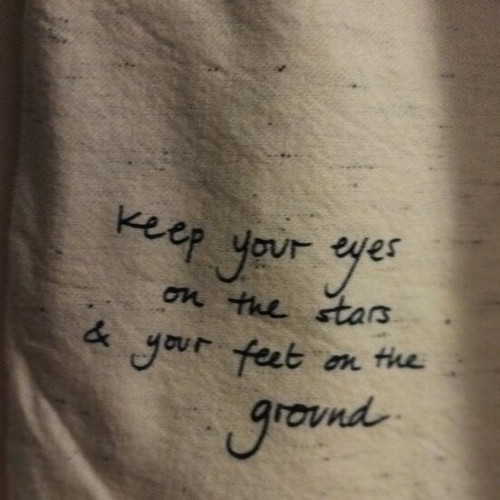 keep your eyes
on the stars
& your feet on the
ground